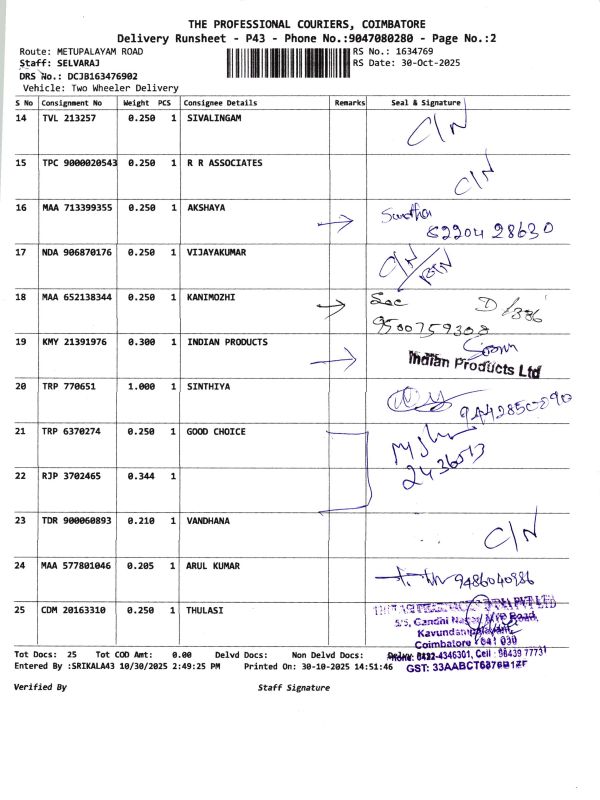 THE PROFESSIONAL COURIERS, COIMBATORE
Delivery Runsheet - P43 - Phone No.:9047080280 - Page No.:2
Route: METUPALAYAM ROAD RS No.: 1634769
Staff: SELVARAJ RS Date: 30-Oct-2025
DRS No.: DCJB163476902
Vehicle: Two Wheeler Delivery
S No Consignment No Weight PCS Consignee Details Remarks Seal & Signature
14 TVL 213257 0.250 1 SIVALINGAM C/N
15 TPC 9000020543 0.250 1 R R ASSOCIATES C/N
16 MAA 713399355 0.250 1 AKSHAYA
62204 28630
17 NDA 906870176 0.250 1 VIJAYAKUMAR C/N
18 MAA 652138344 0.250 1 KANIMOZHI
9500759308
19 KMY 21391976 0.300 1 INDIAN PRODUCTS
Indian Products Ltd
20 TRP 770651 1.000 1 SINTHIYA
21 TRP 6370274 0.250 1 GOOD CHOICE
22 RJP 3702465 0.344 1
23 TDR 900060893 0.210 1 VANDHANA C/N
24 MAA 577801046 0.205 1 ARUL KUMAR 9486040986
25 CDM 20163310 0.250 1 THULASI
5/5, Gandhi Nagar, MTP Road,
Kavundampalayam,
Coimbatore - 641 030
Phone: 0422-4346301, Cell : 98439 77731
GST: 33AABCT6876B1ZF
Tot Docs: 25 Tot COD Amt: 0.00 Delvd Docs: Non Delvd Docs:
Entered By :SRIKALA43 10/30/2025 2:49:25 PM Printed On: 30-10-2025 14:51:46
Verified By Staff Signature